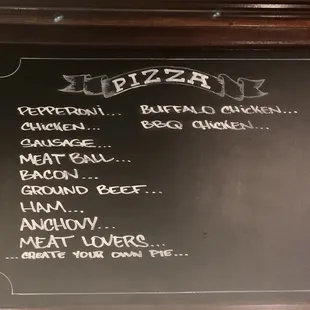 PIZZA
PEPPERONI...
CHICKEN...
SAUSAGE...
MEAT BALL...
BACON...
GROUND BEEF...
HAM...
ANCHOVY...
MEAT LOVERS...
...CREATE YOUR OWN PIE...
BUFFALO CHICKEN...
BBQ CHICKEN...